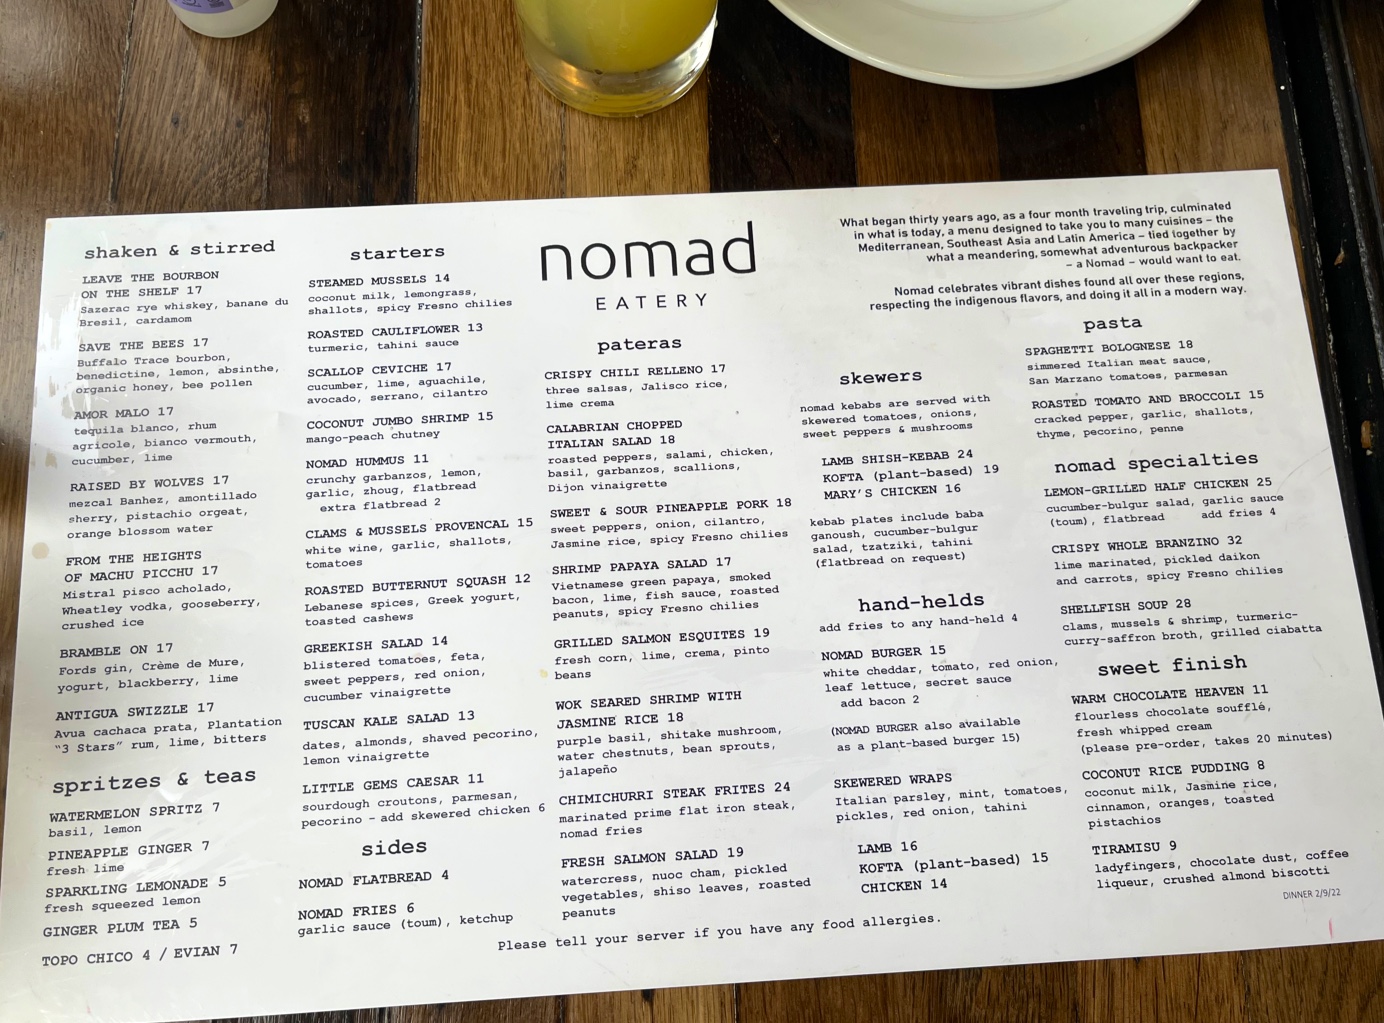 shaken & stirred
LEAVE THE BOURBON
ON THE SHELF 17
Sazerac rye whiskey, banane du
Bresil, cardamom
SAVE THE BEES 17
Buffalo Trace bourbon,
benedictine, lemon, absinthe,
organic honey, bee pollen
AMOR MALO 17
tequila blanco, rhum
agricole, bianco vermouth,
cucumber, lime
RAISED BY WOLVES 17
mezcal Banhez, amontillado
sherry, pistachio orgeat,
orange blossom water
FROM THE HEIGHTS
OF MACHU PICCHU 17
Mistral pisco acholado,
Wheatley vodka, gooseberry,
crushed ice
BRAMBLE ON 17
Fords gin, Crème de Mure,
yogurt, blackberry, lime
ANTIGUA SWIZZLE 17
Avua cachaca prata, Plantation
"3 Stars" rum, lime, bitters
spritzes & teas
WATERMELON SPRITZ 7
basil, lemon
PINEAPPLE GINGER 7
fresh lime
SPARKLING LEMONADE 5
fresh squeezed lemon
GINGER PLUM TEA 5
TOPO CHICO 4 / EVIAN 7
starters
STEAMED MUSSELS 14
coconut milk, lemongrass,
shallots, spicy Fresno chilies
ROASTED CAULIFLOWER 13
turmeric, tahini sauce
SCALLOP CEVICHE 17
cucumber, lime, aguachile,
avocado, serrano, cilantro
COCONUT JUMBO SHRIMP 15
mango-peach chutney
NOMAD HUMMUS 11
crunchy garbanzos, lemon,
garlic, zhoug, flatbread
extra flatbread 2
CLAMS & MUSSELS PROVENCAL 15
white wine, garlic, shallots,
tomatoes
ROASTED BUTTERNUT SQUASH 12
Lebanese spices, Greek yogurt,
toasted cashews
GREEKISH SALAD 14
blistered tomatoes, feta,
sweet peppers, red onion,
cucumber vinaigrette
TUSCAN KALE SALAD 13
dates, almonds, shaved pecorino,
lemon vinaigrette
LITTLE GEMS CAESAR 11
sourdough croutons, parmesan,
pecorino - add skewered chicken 6
sides
NOMAD FLATBREAD 4
NOMAD FRIES 6
garlic sauce (toum), ketchup
nomad
EATERY
pateras
CRISPY CHILI RELLENO 17
three salsas, Jalisco rice,
lime crema
CALABRIAN CHOPPED
ITALIAN SALAD 18
roasted peppers, salami, chicken,
basil, garbanzos, scallions,
Dijon vinaigrette
SWEET & SOUR PINEAPPLE PORK 18
sweet peppers, onion, cilantro,
Jasmine rice, spicy Fresno chilies
SHRIMP PAPAYA SALAD 17
Vietnamese green papaya, smoked
bacon, lime, fish sauce, roasted
peanuts, spicy Fresno chilies
GRILLED SALMON ESQUITES 19
fresh corn, lime, crema, pinto
beans
WOK SEARED SHRIMP WITH
JASMINE RICE 18
purple basil, shitake mushroom,
water chestnuts, bean sprouts,
jalapeño
CHIMICHURRI STEAK FRITES 24
marinated prime flat iron steak,
nomad fries
FRESH SALMON SALAD 19
watercress, nuoc cham, pickled
vegetables, shiso leaves, roasted
peanuts
What began thirty years ago, as a four month traveling trip, culminated
in what is today, a menu designed to take you to many cuisines – the
Mediterranean, Southeast Asia and Latin America – tied together by
what a meandering, somewhat adventurous backpacker
– a Nomad – would want to eat.
Nomad celebrates vibrant dishes found all over these regions,
respecting the indigenous flavors, and doing it all in a modern way.
skewers
nomad kebabs are served with
skewered tomatoes, onions,
sweet peppers & mushrooms
LAMB SHISH-KEBAB 24
KOFTA (plant-based) 19
MARY'S CHICKEN 16
kebab plates include baba
ganoush, cucumber-bulgur
salad, tzatziki, tahini
(flatbread on request)
hand-helds
add fries to any hand-held 4
NOMAD BURGER 15
white cheddar, tomato, red onion,
leaf lettuce, secret sauce
add bacon 2
(NOMAD BURGER also available
as a plant-based burger 15)
SKEWERED WRAPS
Italian parsley, mint, tomatoes,
pickles, red onion, tahini
LAMB 16
KOFTA (plant-based) 15
CHICKEN 14
pasta
SPAGHETTI BOLOGNESE 18
simmered Italian meat sauce,
San Marzano tomatoes, parmesan
ROASTED TOMATO AND BROCCOLI 15
cracked pepper, garlic, shallots,
thyme, pecorino, penne
nomad specialties
LEMON-GRILLED HALF CHICKEN 25
cucumber-bulgur salad, garlic sauce
(toum), flatbread add fries 4
CRISPY WHOLE BRANZINO 32
lime marinated, pickled daikon
and carrots, spicy Fresno chilies
SHELLFISH SOUP 28
clams, mussels & shrimp, turmeric-
curry-saffron broth, grilled ciabatta
sweet finish
WARM CHOCOLATE HEAVEN 11
flourless chocolate soufflé,
fresh whipped cream
(please pre-order, takes 20 minutes)
COCONUT RICE PUDDING 8
coconut milk, Jasmine rice,
cinnamon, oranges, toasted
pistachios
TIRAMISU 9
ladyfingers, chocolate dust, coffee
liqueur, crushed almond biscotti
DINNER 2/9/22
Please tell your server if you have any food allergies.